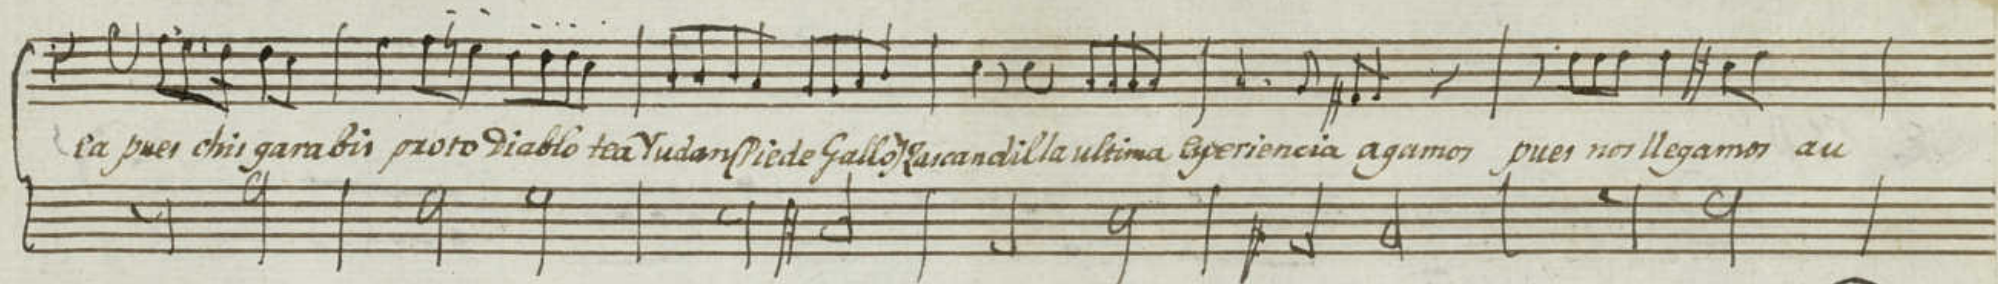 ea pues chisgarabis proto Diablo tea Yudan Piede Gallo Zascandilla ultima Experiencia agamos pues nos llegamos au